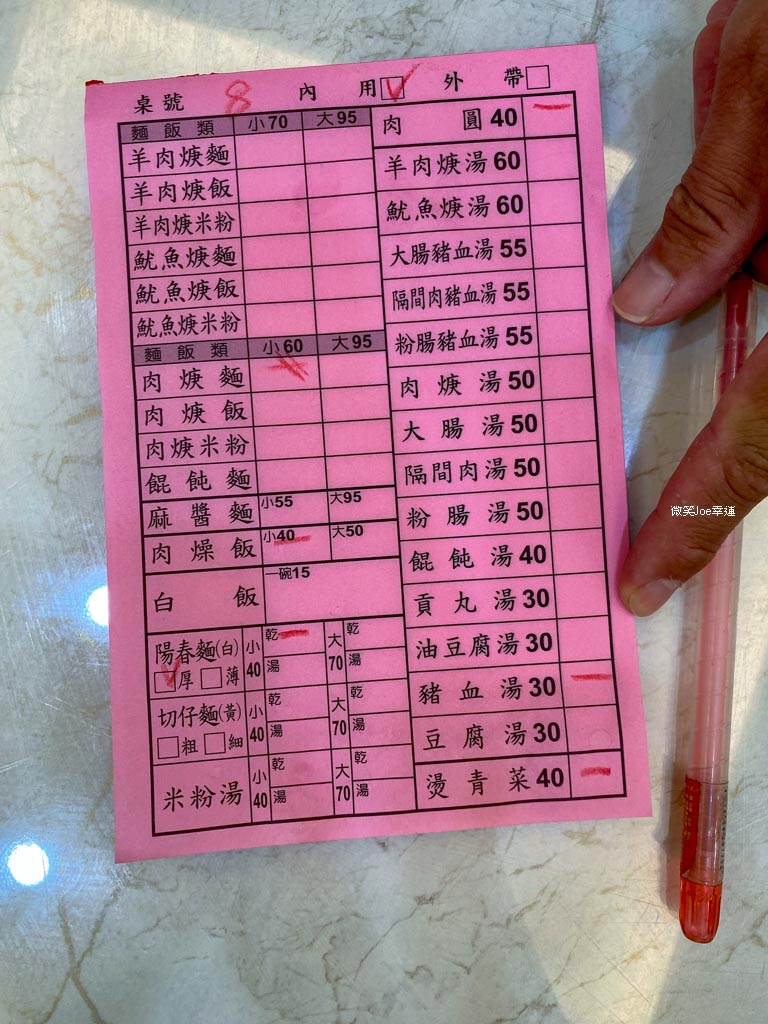 桌號 8 內用 ✓ 外帶 □
麵飯類 小70 大95
羊肉焿麵
羊肉焿飯
羊肉焿米粉
魷魚焿麵
魷魚焿飯
魷魚焿米粉
麵飯類 小60 大95
肉焿麵
肉焿飯
肉焿米粉
餛飩麵
麻醬麵 小55 大95
肉燥飯 小40 大50
白飯 一碗15
陽春麵(白) 小40 乾 湯 大70 乾 湯
✓厚 □薄
切仔麵(黃) 小40 乾 湯 大70 乾 湯
□粗 □細
米粉湯 小40 乾 湯 大70 乾 湯
肉圓40
羊肉焿湯60
魷魚焿湯60
大腸豬血湯55
隔間肉豬血湯55
粉腸豬血湯55
肉焿湯50
大腸湯50
隔間肉湯50
粉腸湯50
餛飩湯40
貢丸湯30
油豆腐湯30
豬血湯30
豆腐湯30
燙青菜40
微笑Joe幸運